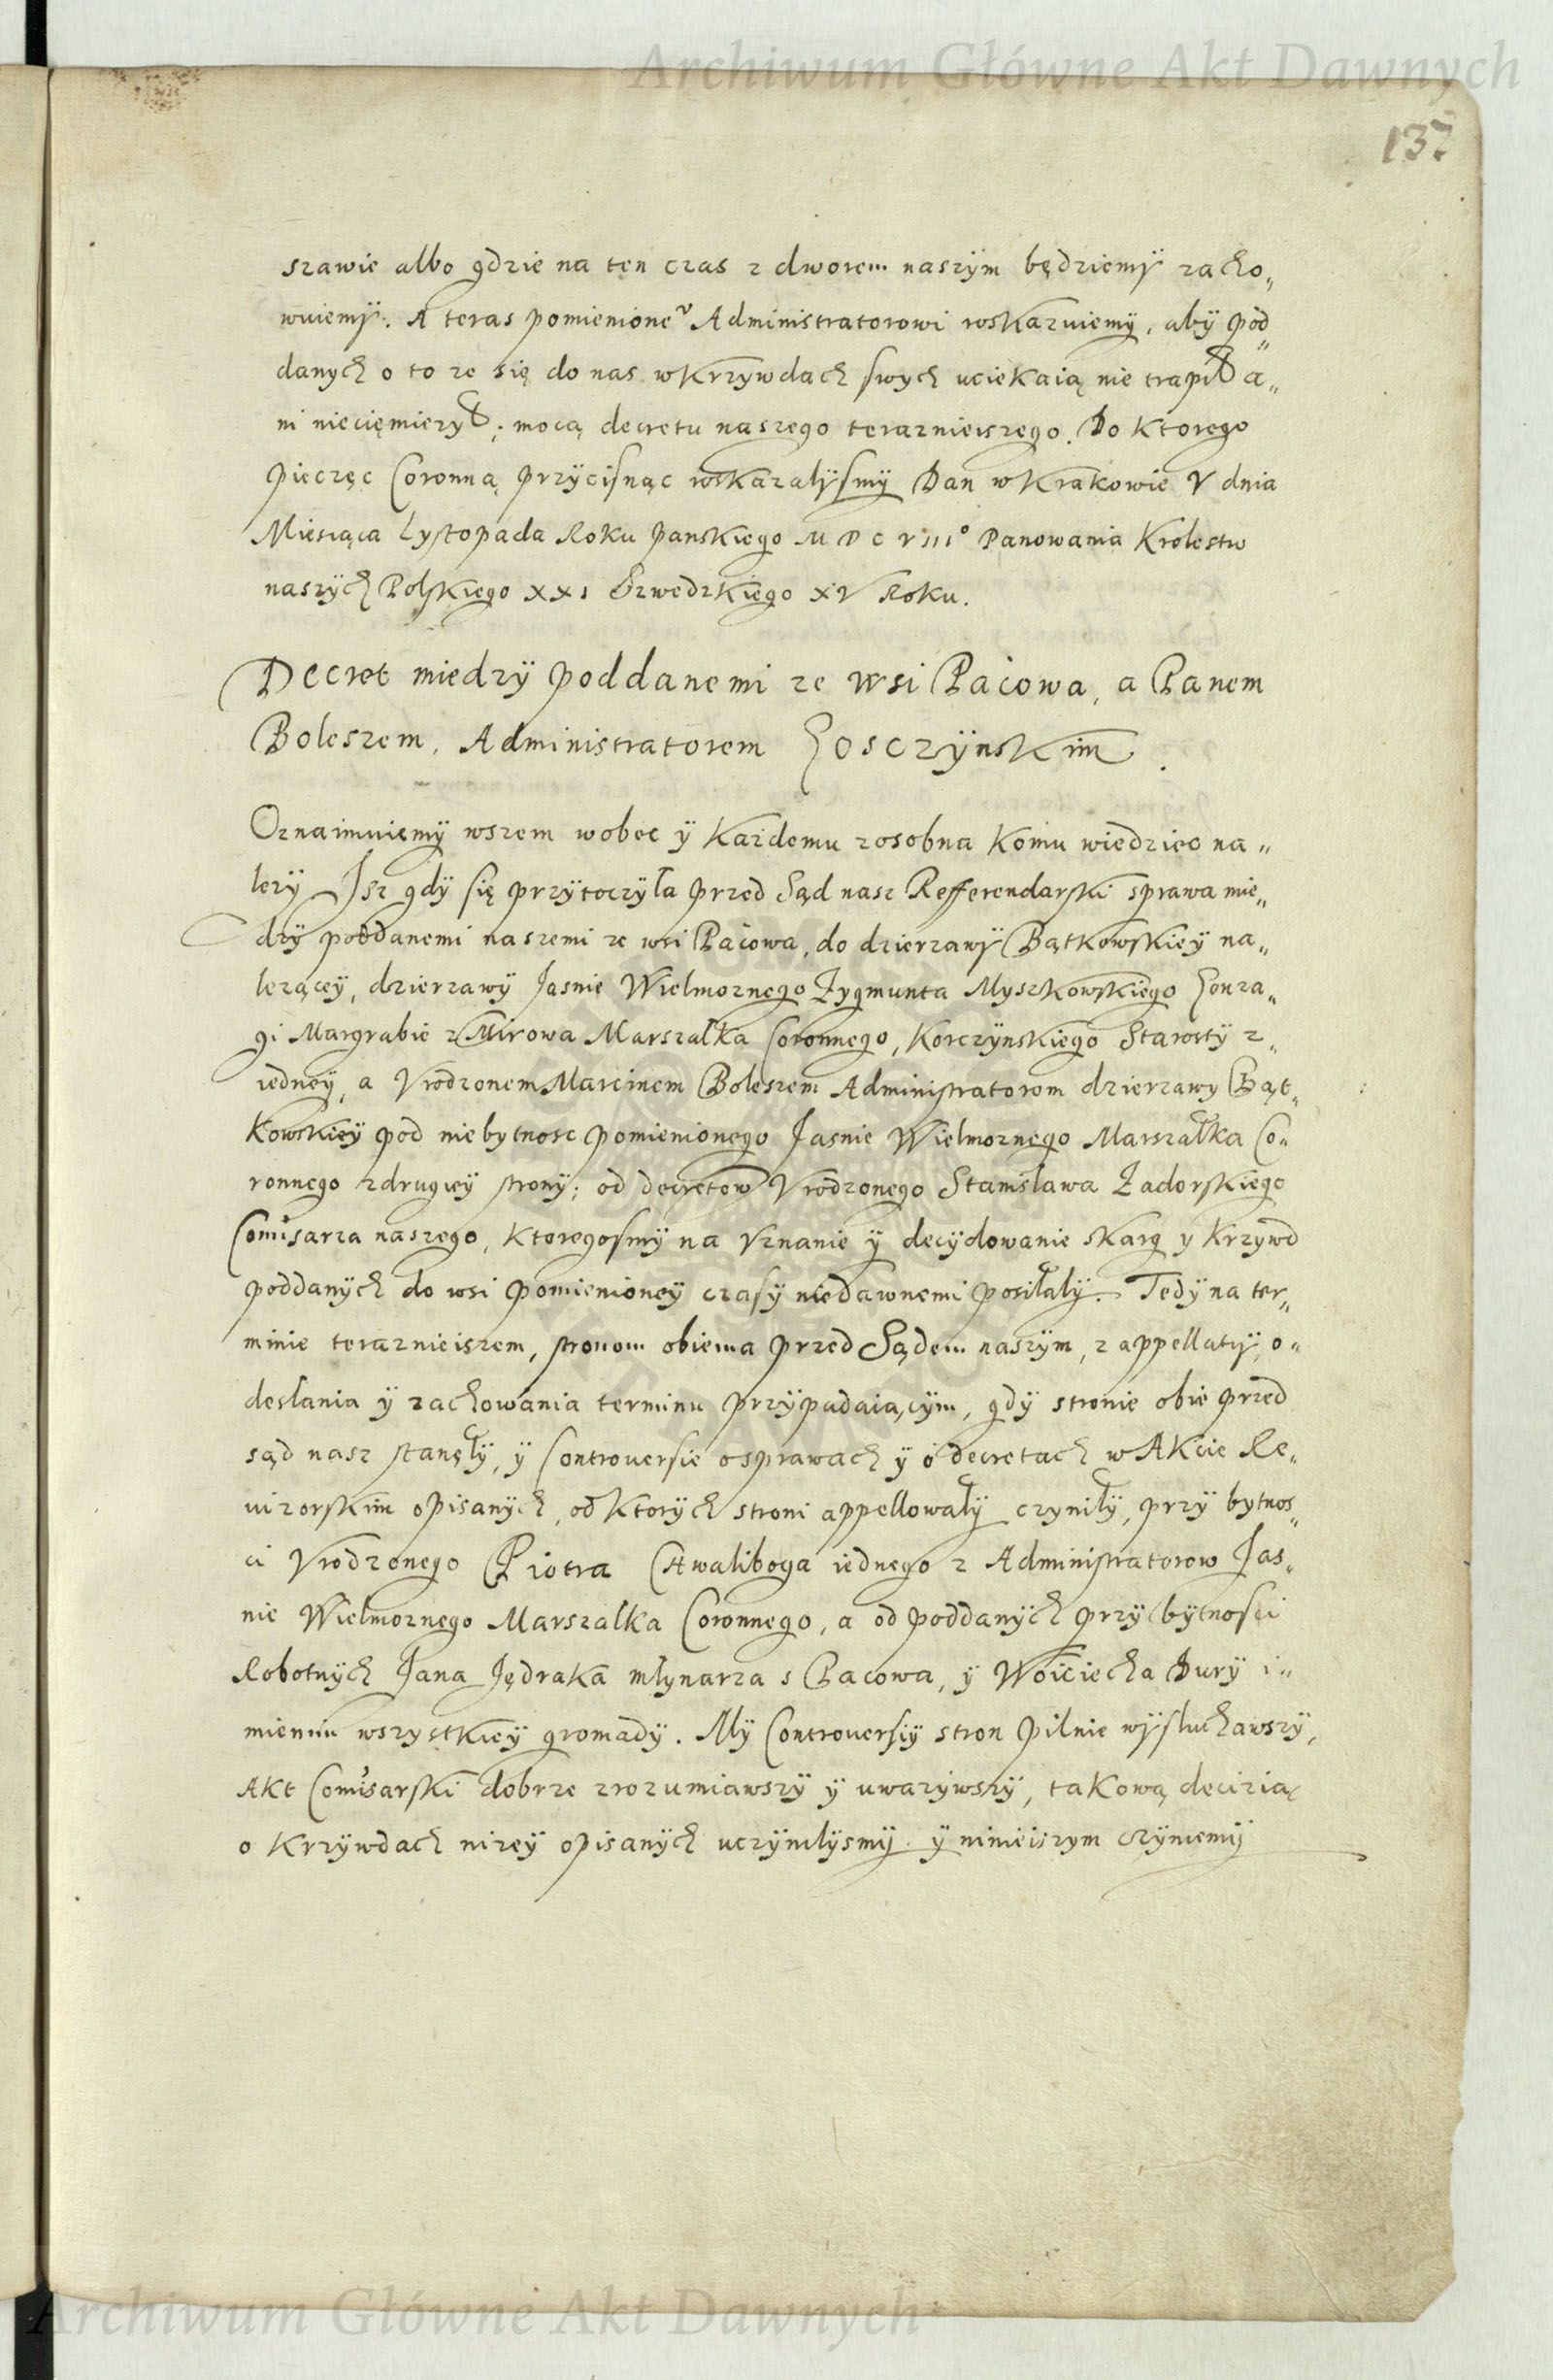 Archiwum Główne Akt Dawnych
137
szawie albo gdzie na ten czas z dworem naszym będziemy zacho„
wuiemy. A teras pomienione° Administratorowi roskazuiemy, aby pod„
danych o to ze się do nas w krzywdach swych uciekaią nie trapił a„
ni nieciemiezył; mocą decretu naszego terazniejszego. Do ktorego
pieczęc Coronną przycisnąc roskazalysmy Dan w Krakowie V dnia
Miesiąca Lystopada Roku panskiego MDCVIII° Panowania Krolestw
naszych Polskiego XXI Szwedzkiego XV Roku.
Decret miedzy poddanemi ze wsi Pacowa, a Panem
Boleszem, Administratorem Gosczynskim.
Oznaimuiemy wszem wobec y kazdemu zosobna komu wiedziec na„
lezy Isz gdy się przytoczyła przed Sąd nasz Refferendarski sprawa mie„
dzy poddanemi naszemi ze wsi Pacowa, do dzierzawy Bątkowskiey na„
lezącey, dzierzawy Jasnie Wielmoznego Zygmunta Myszkowskiego Gonza„
gi Margrabie z Mirowa Marszałka Coronnego, Korczynskiego Starosty z„
iedney, a Vrodzonem Marcinem Boleszem Administratorom dzierzawy Bąt„
kowskiey pod niebytnosc pomienionego Jasnie Wielmoznego Marszałka Co„
ronnego z drugiey strony; od decretow Vrodzonego Stanisława Zadorskiego
Comisarza naszego, ktoregosmy na Vznanie y decydowanie skarg y krzywd
poddanych do wsi pomienioney czasy niedawnemi posiłały. Tedy na ter„
minie teraznieiszem, stronom obiema przed Sądem naszym, z appellatiy, o„
desłania y zachowania terminu przypadaiącym, gdy stronie obie przed
sąd nasz stanęły, y Controuersie o sprawach y o decretach w Akcie Re„
uizorskim opisanych, od ktorych stroni appellowały czyniły, przy bytnos„
ci Vrodzonego Piotra Chwaliboga iednego z Administratorow Jas„
nie Wielmoznego Marszalka Coronnego, a od poddanych przy bytnosci
Robotnych Jana Jędraka młynarza s Pacowa, y Woiciecha Dury i„
mieniu wszystkiey gromady. My Controuersiy stron pilnie wysłuchawszy,
Akt Comisarski dobrze zrozumiawszy y uwazywszy, takową decizią
o krzywdach nizey opisanych uczynilysmy y ninieiszym czyniemy
Archiwum Główne Akt Dawnych